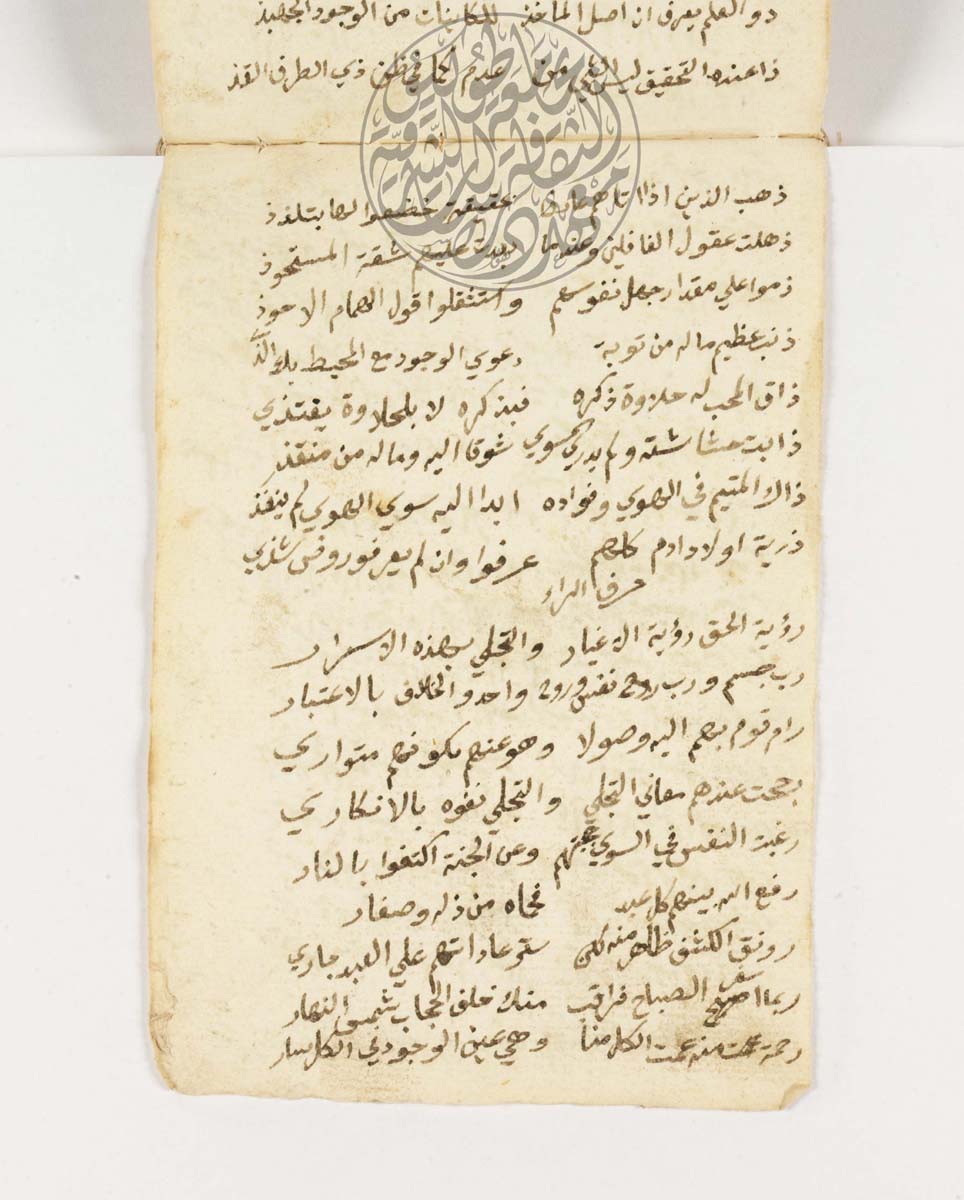 ذو العلم يعرف ان اصل الماخذ للكائنات من الوجود الجهبذ
ذا عنده التحقيق ليس الشي من عدم كما في ظن ذي الطرف القذ
ذهب الذين اذا اتاهم بحقيقة خضعوا لها بتلذذ
ذهلت عقول الغافلين وعندما بعدت عليهم شقة المستحوذ
ذموا علي مقدار جهل نفوسهم واستثقلوا قول الهمام الاحوذ
ذنب عظيم ماله من توبة دعوي الوجود مع المحيط
ذاق المحب له حلاوة ذكره فبذكره لا بالحلاوة يغتذي
ذابت حشاشته ولم يدري السوي شوقا اليه وماله من منقذ
ذاك المتيم في الهوي وفواده ابدا اليه سوي الهوي لم ينفذ
ذرية اولاد ادم كلهم عرفوا وان لم يعرفوا روض شذي
حرف الراء
رؤية الحق رؤية الاغيار والتجلي بهذه الاسرار
رب جسم ورب روح نفس وروح واحد والخلاف بالاعتبار
رام قوم بهم اليه وصولا وهو عنهم بكونهم متواري
عندهم معاني التجلي والتجلي نفوه بالانكاري
رغبت النفس في السوي وعن الجنة اكتفوا بالنار
رفع الله بينهم كل عبد نجاه من ذله وصغار
رونق الكشف ظاهر منه لكن ستر عاداتهم علي العبد جاري
ربما الصباح فراقب منك خلف الحجاب شمس النهار
رحمة منه عمت الكل منا وهي عين الوجود في الكل سار